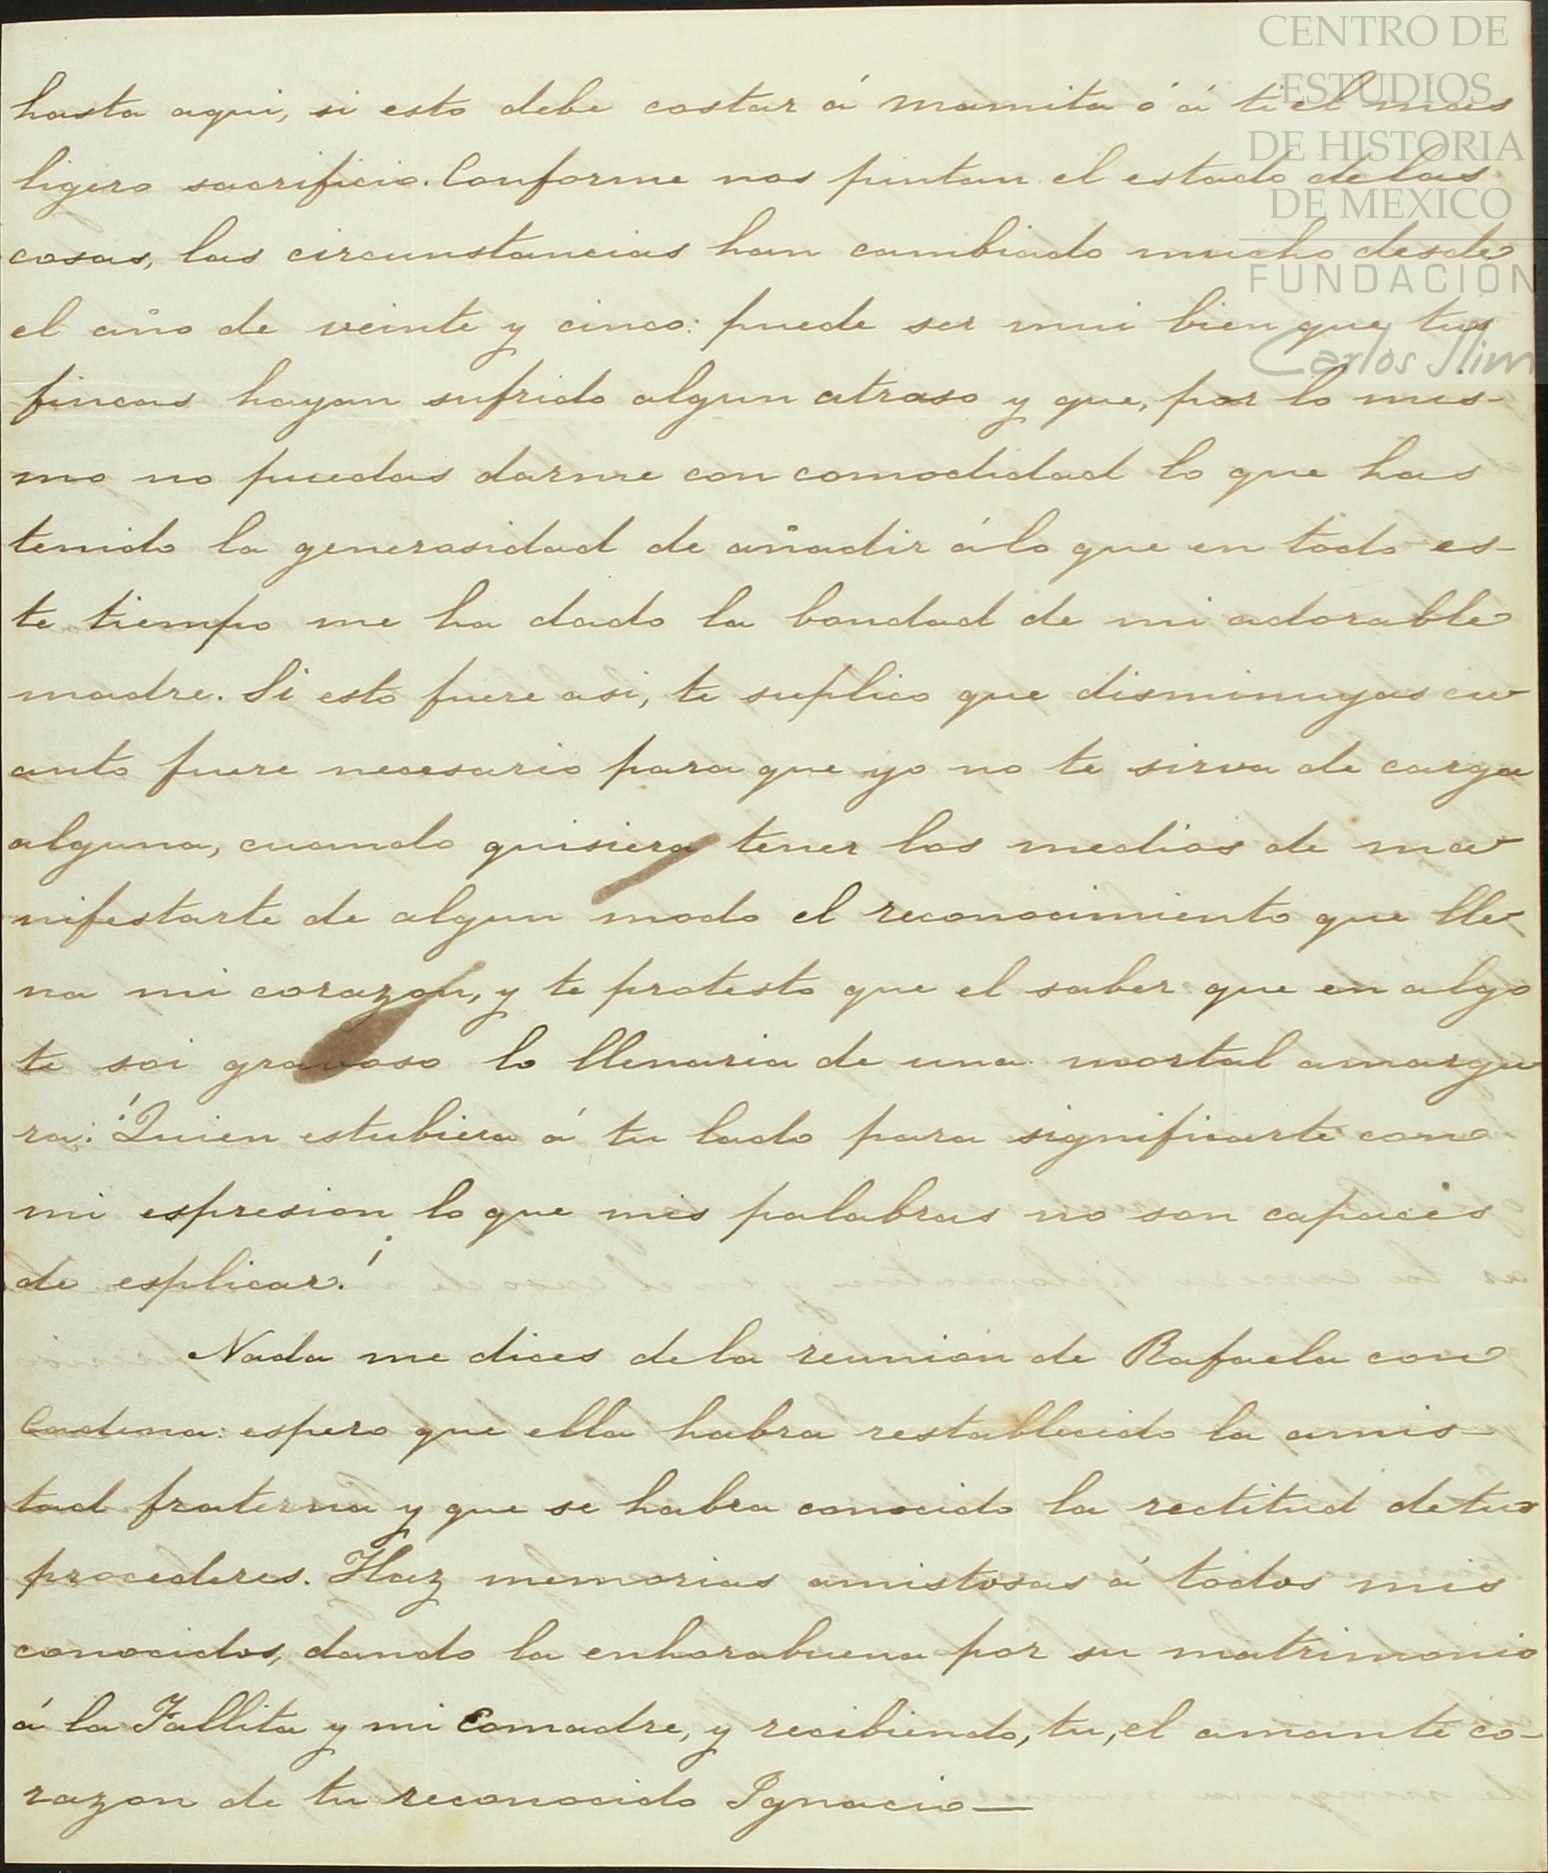 CENTRO DE
ESTUDIOS
DE HISTORIA
DE MEXICO
FUNDACIÓN
Carlos Slim
hasta aqui, si esto debe costar á mamita ó á ti el mas
ligero sacrificio. Conforme nos pintan el estado de las
cosas, las circunstancias han cambiado mucho desde
el año de veinte y cinco: puede ser mui bien que tus
fincas hayan sufrido algun atraso y que, por lo mis-
mo no puedas darme con comodidad lo que has
tenido la generosidad de añadir á lo que en todo es-
te tiempo me ha dado la bondad de mi adorable
madre. Si esto fuere asi, te suplico que disminuyas cu-
anto fuere necesario para que yo no te sirva de carga
alguna, cuando quisiera tener los medios de ma-
nifestarte de algun modo el reconocimiento que lle-
na mi corazon, y te protesto que el saber que en algo
te soi gravoso lo llenaria de una mortal amargu-
ra: ¡Quien estubiera á tu lado para significarte con
mi espresion lo que mis palabras no son capaces
de esplicar!
Nada me dices de la reunion de Rafaela con
Cadena: espero que ella habra restablecido la amis-
tad fraterna y que se habra conocido la rectitud de tus
procederes. Haz memorias amistosas á todos mis
conocidos, dando la enhorabuena por su matrimonio
á la Fallita y mi Comadre, y recibiendo, tu, el amante co-
razon de tu reconocido Ygnacio—